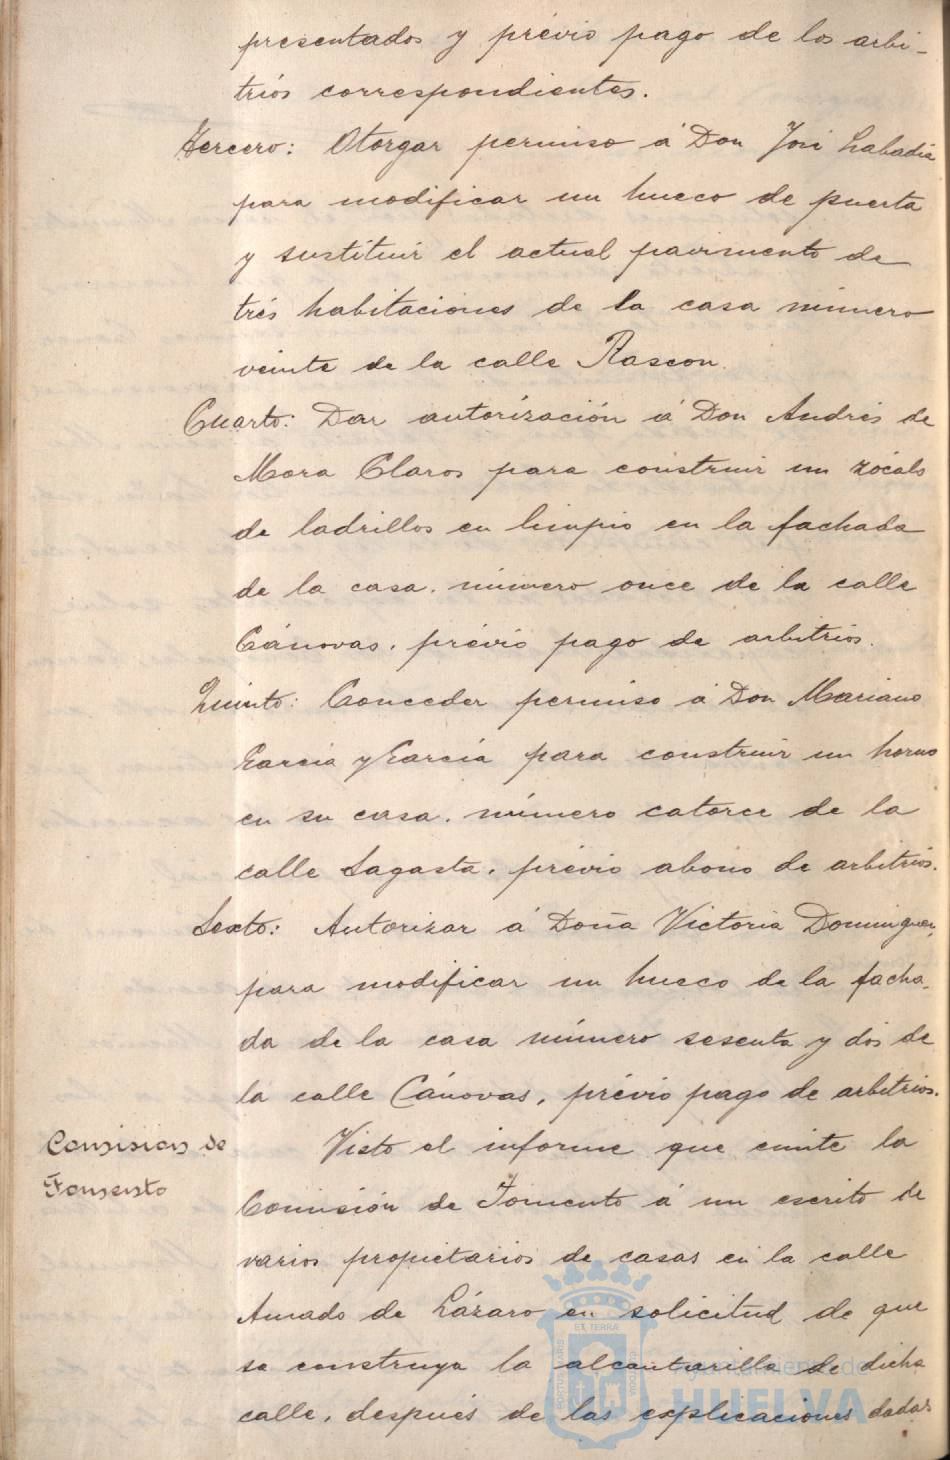 presentados y prévio pago de los arbi-
trios correspondientes.
Tercero: Otorgar permiso á Don José Labadía
para modificar un hueco de puerta
y sustituir el actual pavimento de
trés habitaciones de la casa número
veinte de la calle Rascon.
Cuarto: Dar autorización á Don Andrés de
Mora Claros para construir un zócalo
de ladrillos en limpio en la fachada
de la casa número once de la calle
Cánovas, prévio pago de arbitrios.
Quinto: Conceder permiso á Don Mariano
García y García para construir un horno
en su casa número catorce de la
calle Sagasta, prévio abono de arbitrios.
Sexto: Autorizar á Doña Victoria Dominguez,
para modificar un hueco de la facha-
da de la casa número sesenta y dos de
la calle Cánovas, prévio pago de arbitrios.
Comision de
Fomento
Visto el informe que emite la
Comisión de Fomento á un escrito de
varios propietarios de casas en la calle
Amado de Lázaro en solicitud de que
se construya la alcantarilla de dicha
calle, después de las explicaciones dadas
ET TERRÆ
PORTUS MARIS
CUSTODIA
Ayuntamiento de
HUELVA